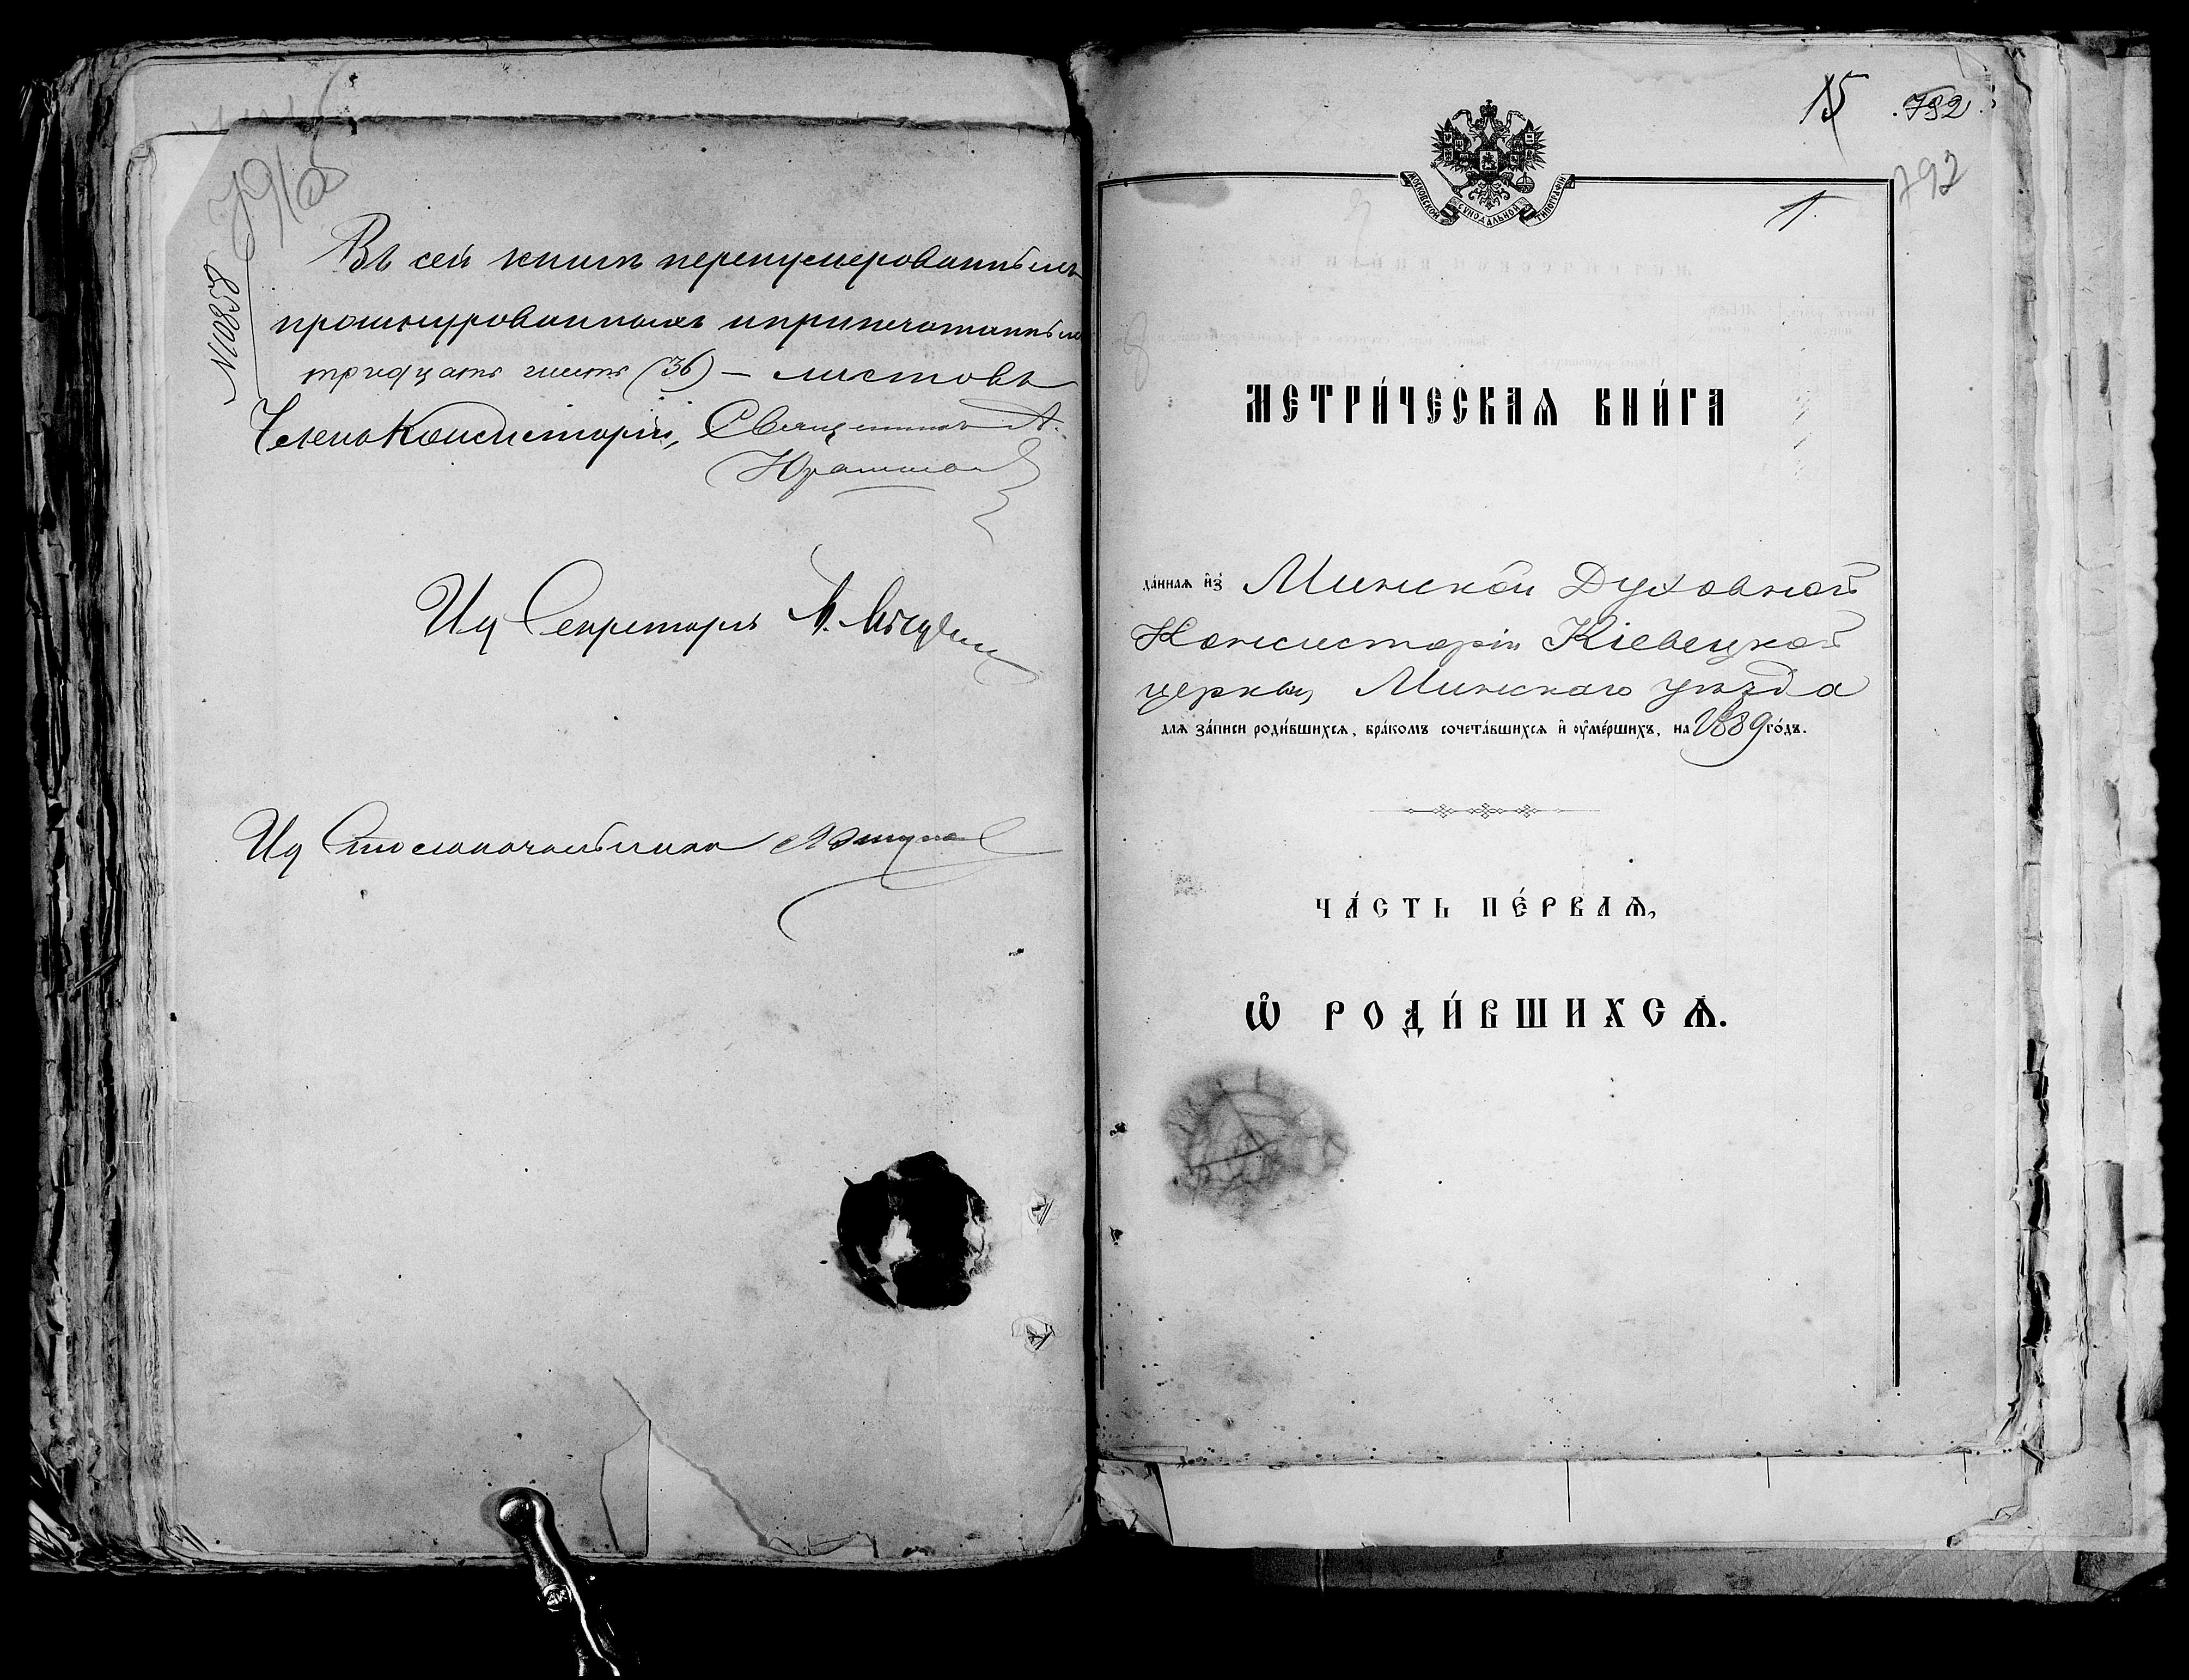 791об
№10858
Въ сей книгѣ перенумерованныхъ
прошнурованныхъ и припечатанныхъ
тридцать шесть (36) — листовъ
Членъ Консисторіи, Священникъ А.
Ид Секретарь А.
Ид Столоначальника
15 792
792
1.
МОСКОВСКОЙ СѴНОДАЛЬНОЙ ТИПОГРАФІИ
МЕТРИ́ЧЕСКАѦ КНИ́ГА
да́ннаѧ и҆зъ Минской Духовной
Консисторіи Кіевецкой
церкви, Минскаго уѣзда
длѧ за́писи роди́вшихсѧ, бра́комъ сочета́вшихсѧ и҆ ѹ҆ме́ршихъ, на 1889 го́дъ.
ЧА́СТЬ ПЕ́РВАѦ,
Ѡ҆ РОДИ́ВШИХСѦ.